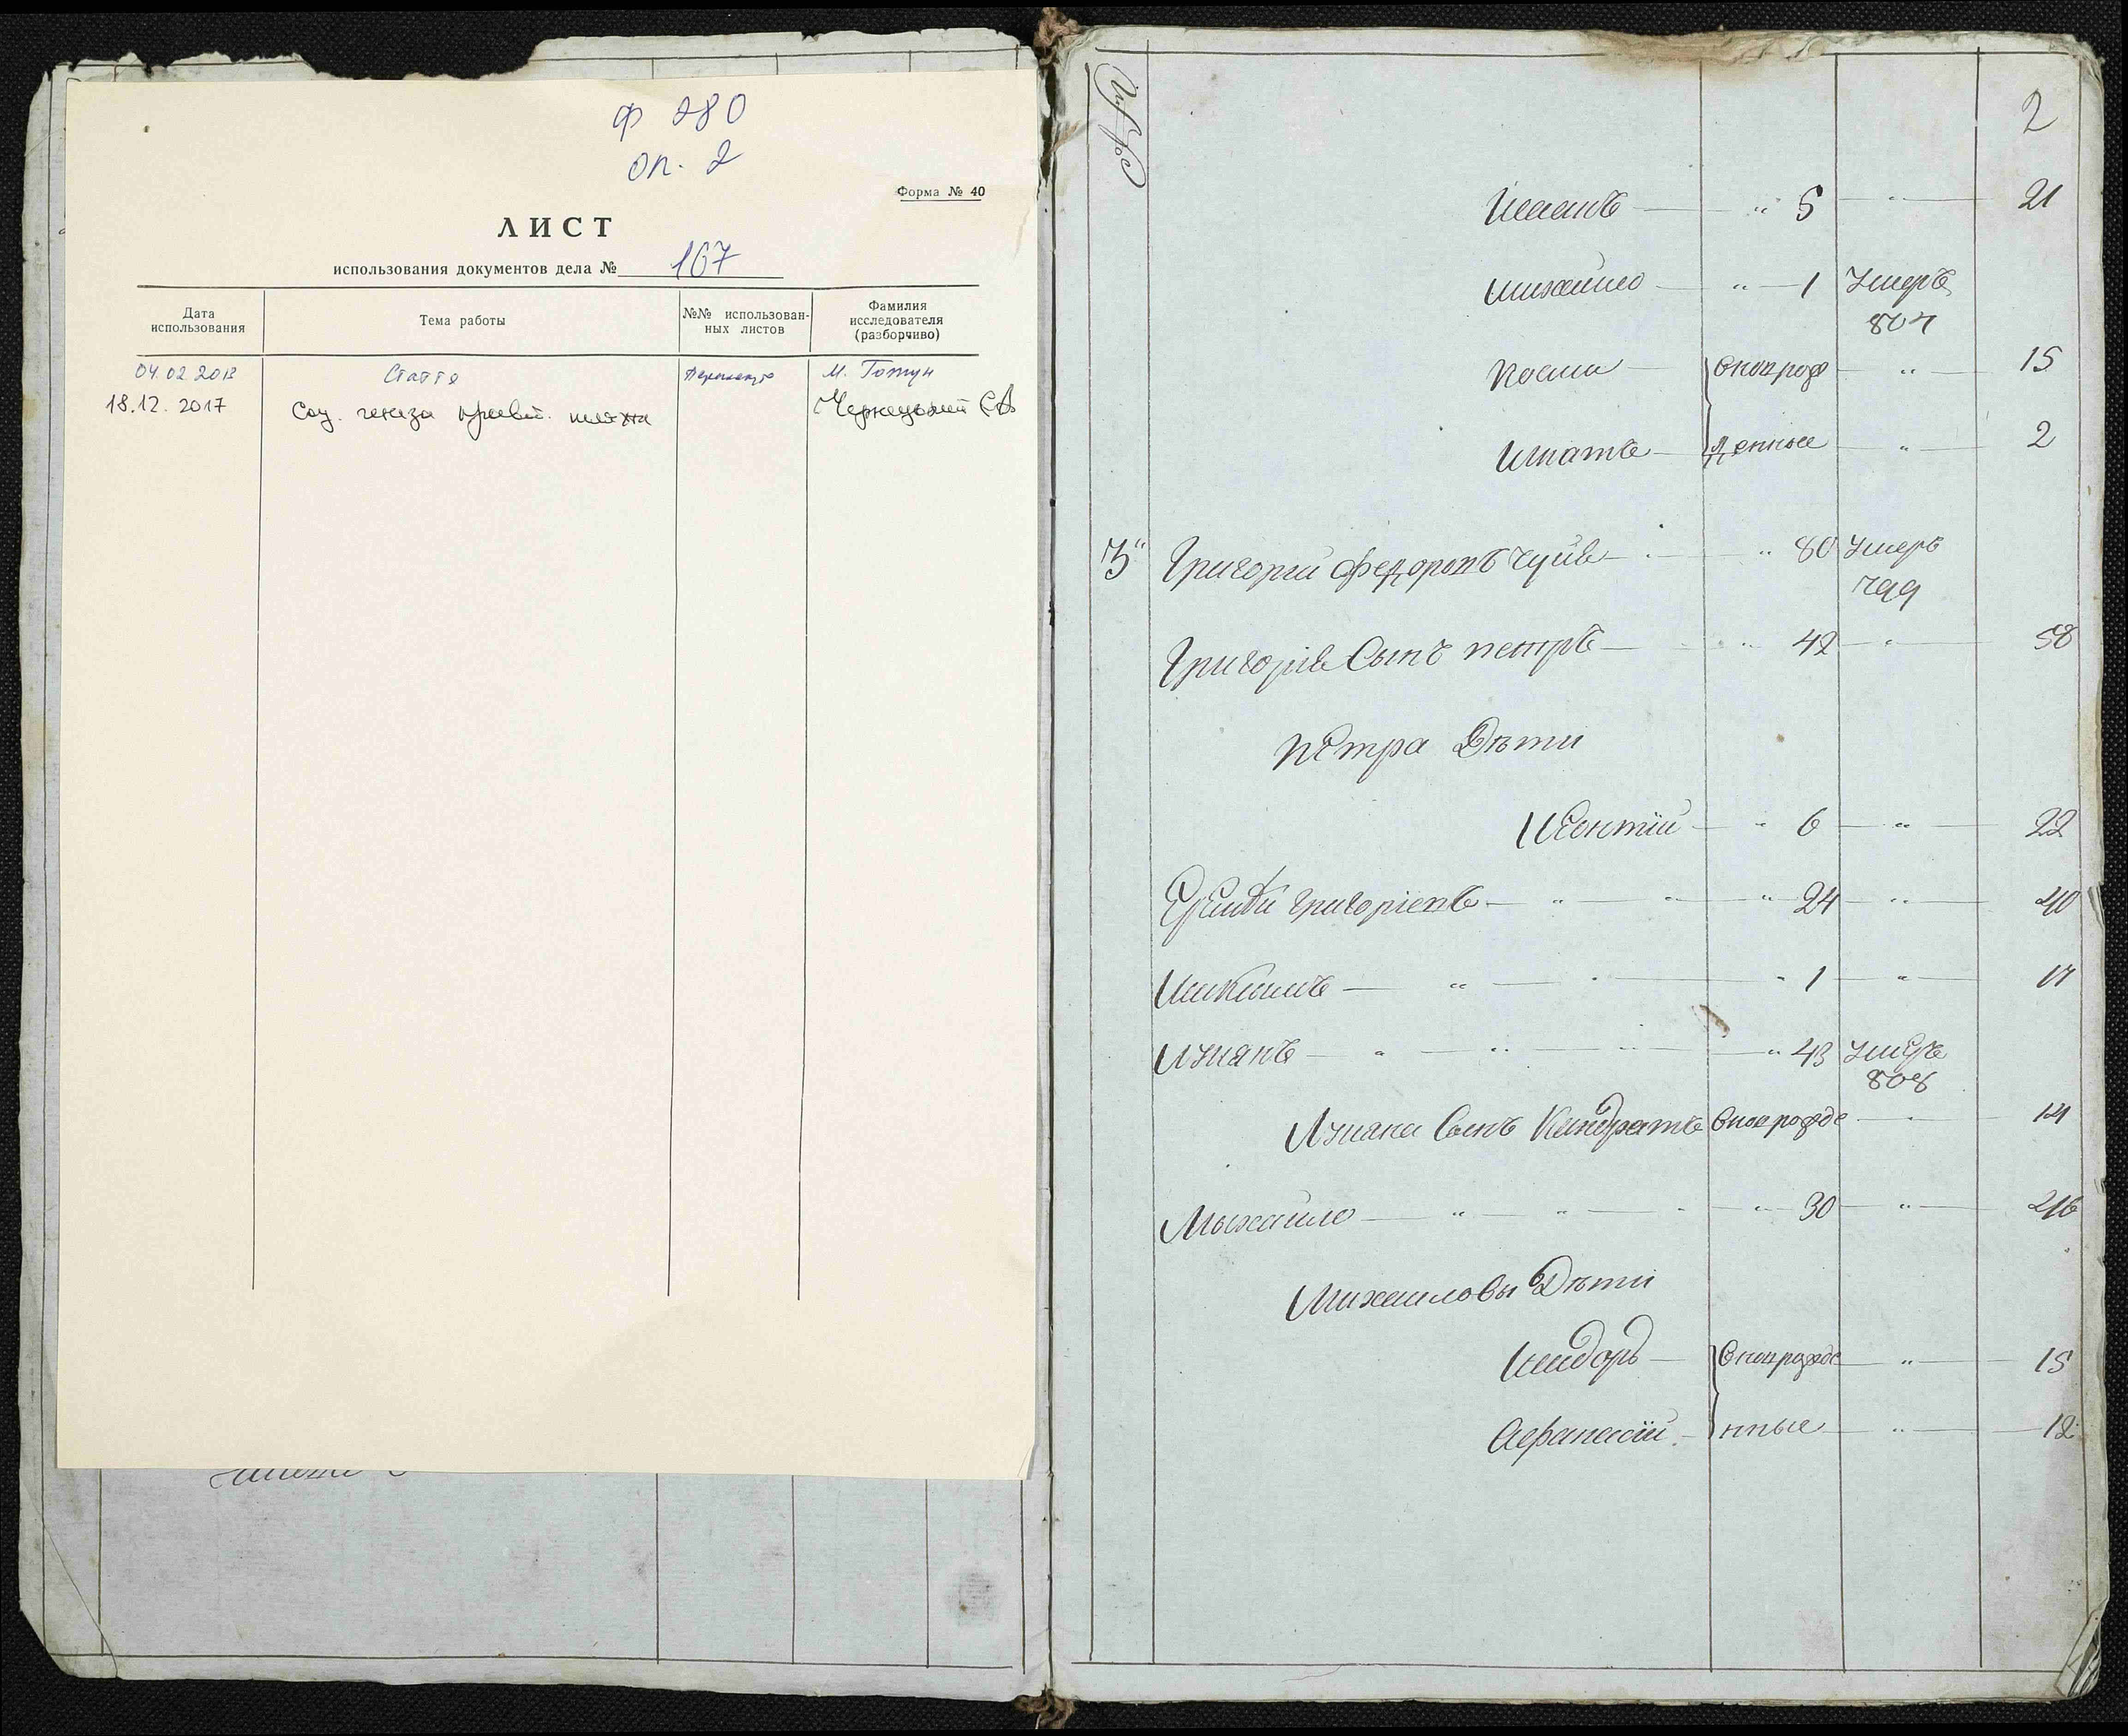 Ф 280
оп. 2
Форма № 40
ЛИСТ
использования документов дела № 167
Дата использования
Тема работы
№№ использован-ных листов
Фамилия исследователя (разборчиво)
04.02.2013 Стаття М. Готун
18.12.2017 Соц. генеза
2
Иванъ 5 21
Михайло 1 Умеръ
804
Косма внопрож 15
Игнатъ денные 2
3 Григорий Федоровъ Чуйв 80 Умеръ
799
Григорія Сынъ петръ 42 58
петра Дѣти
Леонтій 6 22
Григоріевъ 24 40
Микита 1 17
Лукянъ 43 умеръ
808
Лукяна Сынъ Кандратъ внопрожде 14
Михайло 30 46
Михаиловы Дѣти
Исидоръ внопрожде 15
Афанасій нные 12